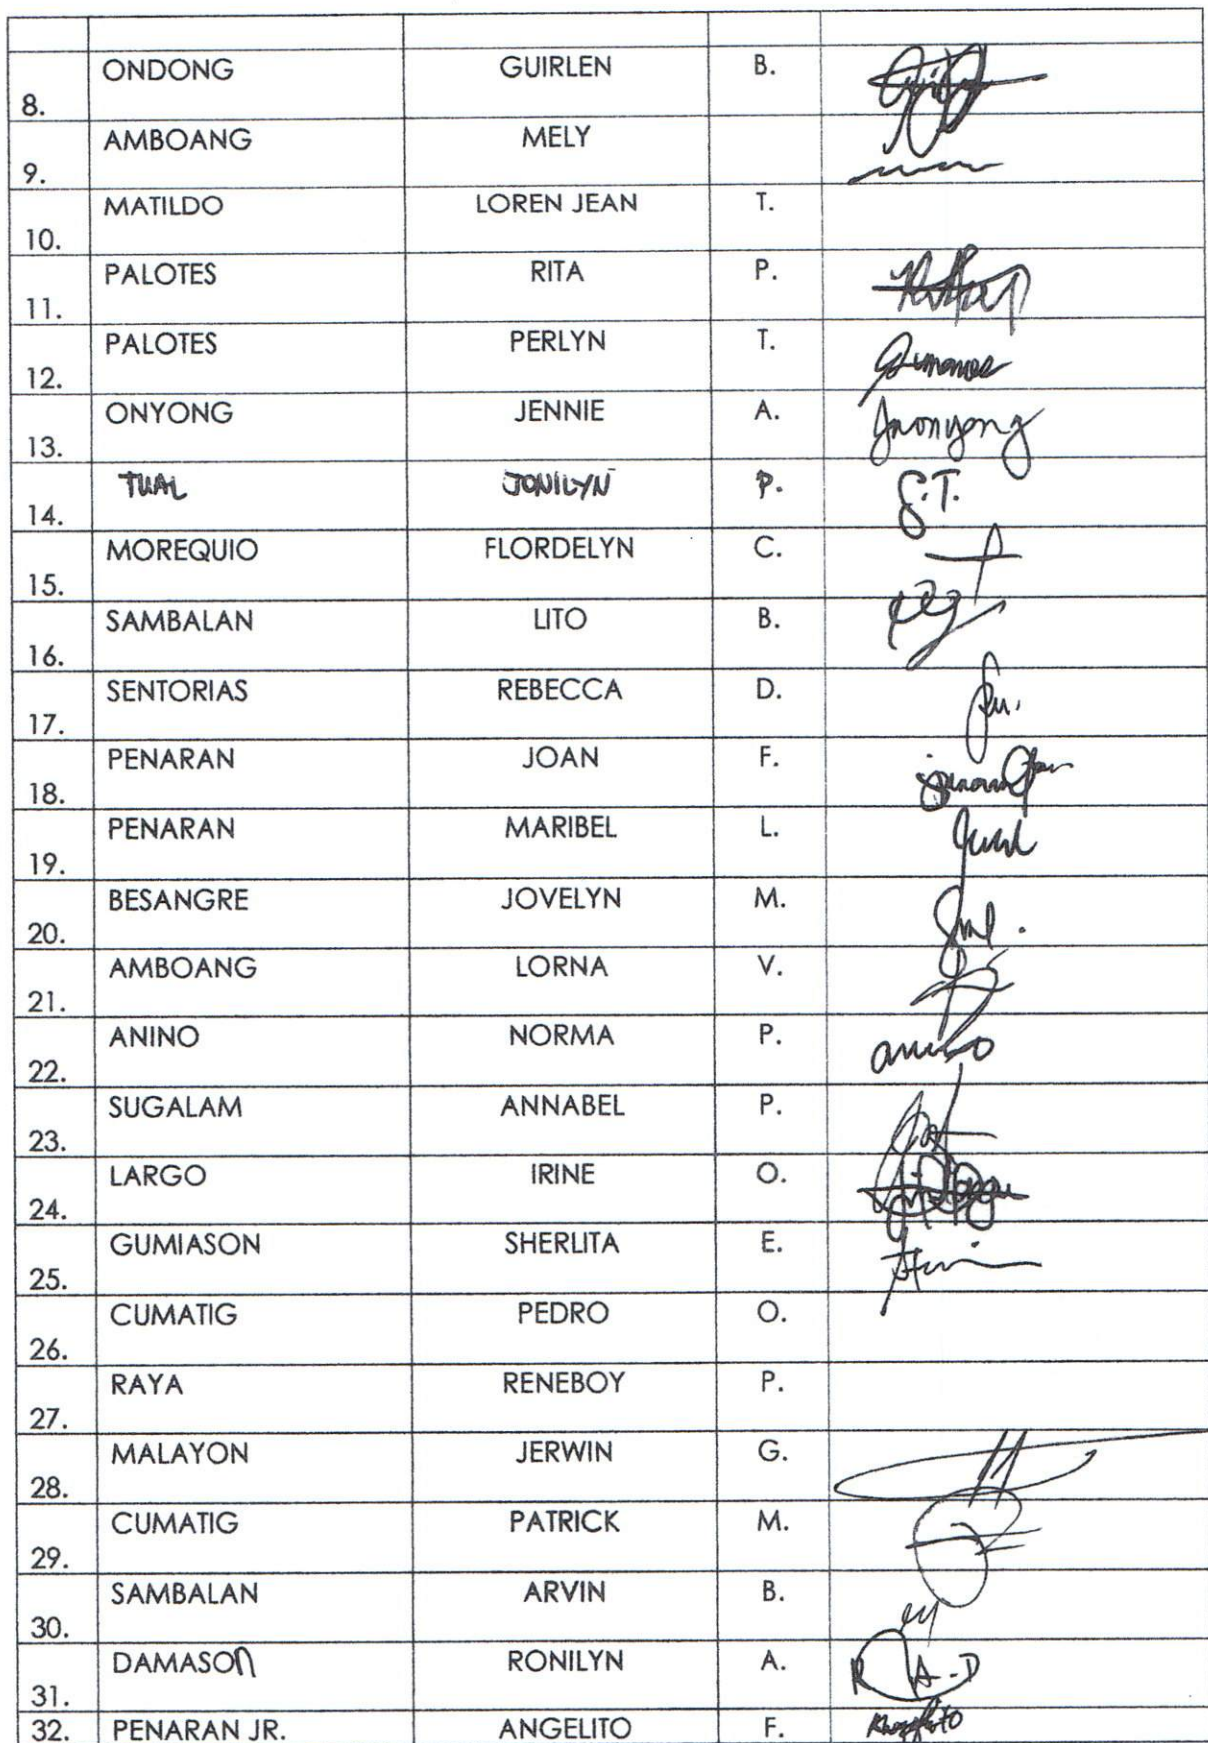 8. ONDONG GUIRLEN B.
9. AMBOANG MELY
10. MATILDO LOREN JEAN T.
11. PALOTES RITA P.
12. PALOTES PERLYN T.
13. ONYONG JENNIE A. Jnonyong
14. TUAL JONILYN P. S.T.
15. MOREQUIO FLORDELYN C.
16. SAMBALAN LITO B.
17. SENTORIAS REBECCA D.
18. PENARAN JOAN F.
19. PENARAN MARIBEL L.
20. BESANGRE JOVELYN M.
21. AMBOANG LORNA V.
22. ANINO NORMA P. anino
23. SUGALAM ANNABEL P.
24. LARGO IRINE O.
25. GUMIASON SHERLITA E.
26. CUMATIG PEDRO O.
27. RAYA RENEBOY P.
28. MALAYON JERWIN G.
29. CUMATIG PATRICK M.
30. SAMBALAN ARVIN B.
31. DAMASON RONILYN A. R A-D
32. PENARAN JR. ANGELITO F.